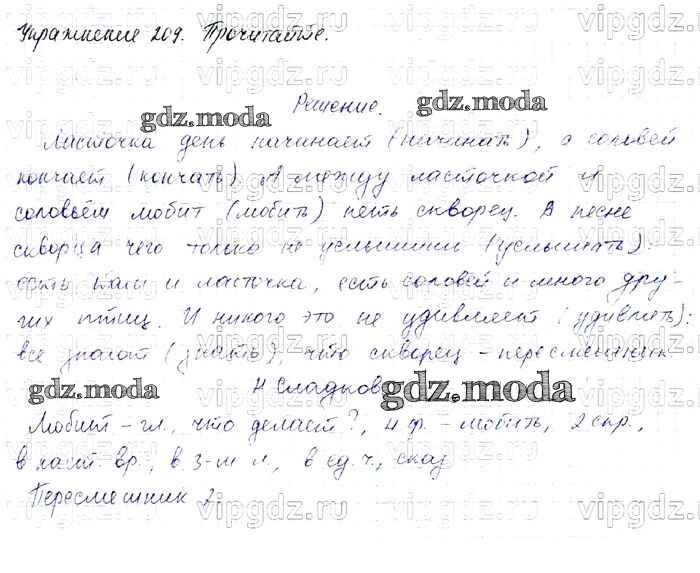 Упражнение 209. Прочитайте.
Решение.
gdz.moda gdz.moda
Ласточка день начинает (начинать), а соловей
кончает (кончать). А между ласточкой и
соловьём любит (любить) петь скворец. В песне
скворца чего только не услышишь (услышать):
есть там и ласточка, есть соловей и много дру-
гих птиц. И никого это не удивляет (удивлять):
все знают (знать), что скворец - пересмешник
Н Сладков
gdz.moda gdz.moda
Любит - гл., что делает?, н ф. - любить, 2 спр.,
в наст. вр., в 3-м л, в ед. ч., сказ
Пересмешник 2.
vipgdz.ru